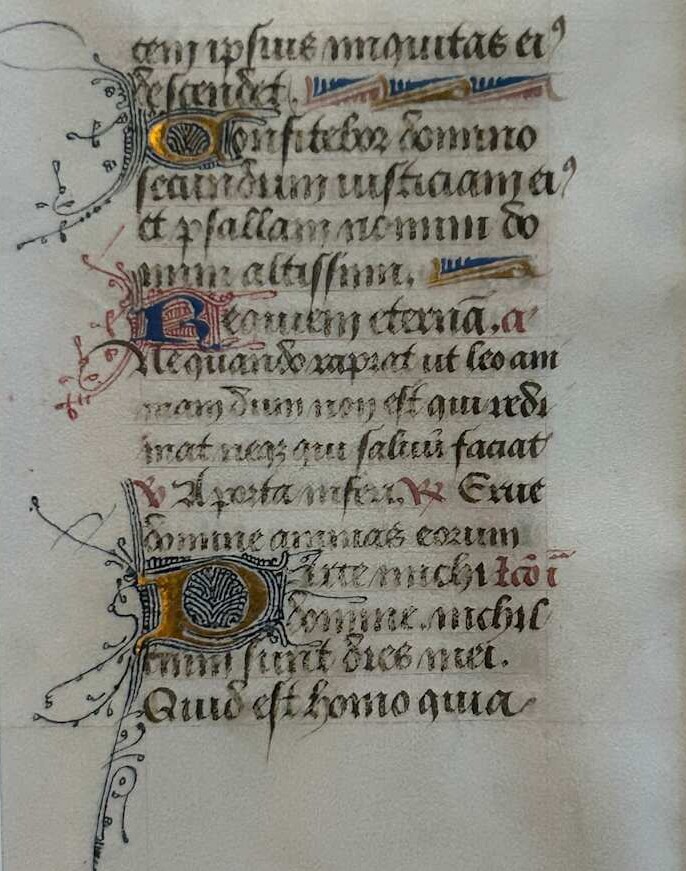 cem ipsius iniquitas eiꝰ
descendet.
Confitebor domino
secundum iusticiam eiꝰ
et psallam nomini do
mini altissimi.
Requiem eternā. a
Nequando rapiat ut leo ani
mam dum non est qui redi
mat neqꝫ qui saluū faciat
℣ A porta inferi. ℟ Erue
domine animas eorum
Parce michi lcō ī
domine. nichil
enim sunt dies mei.
Quid est homo quia